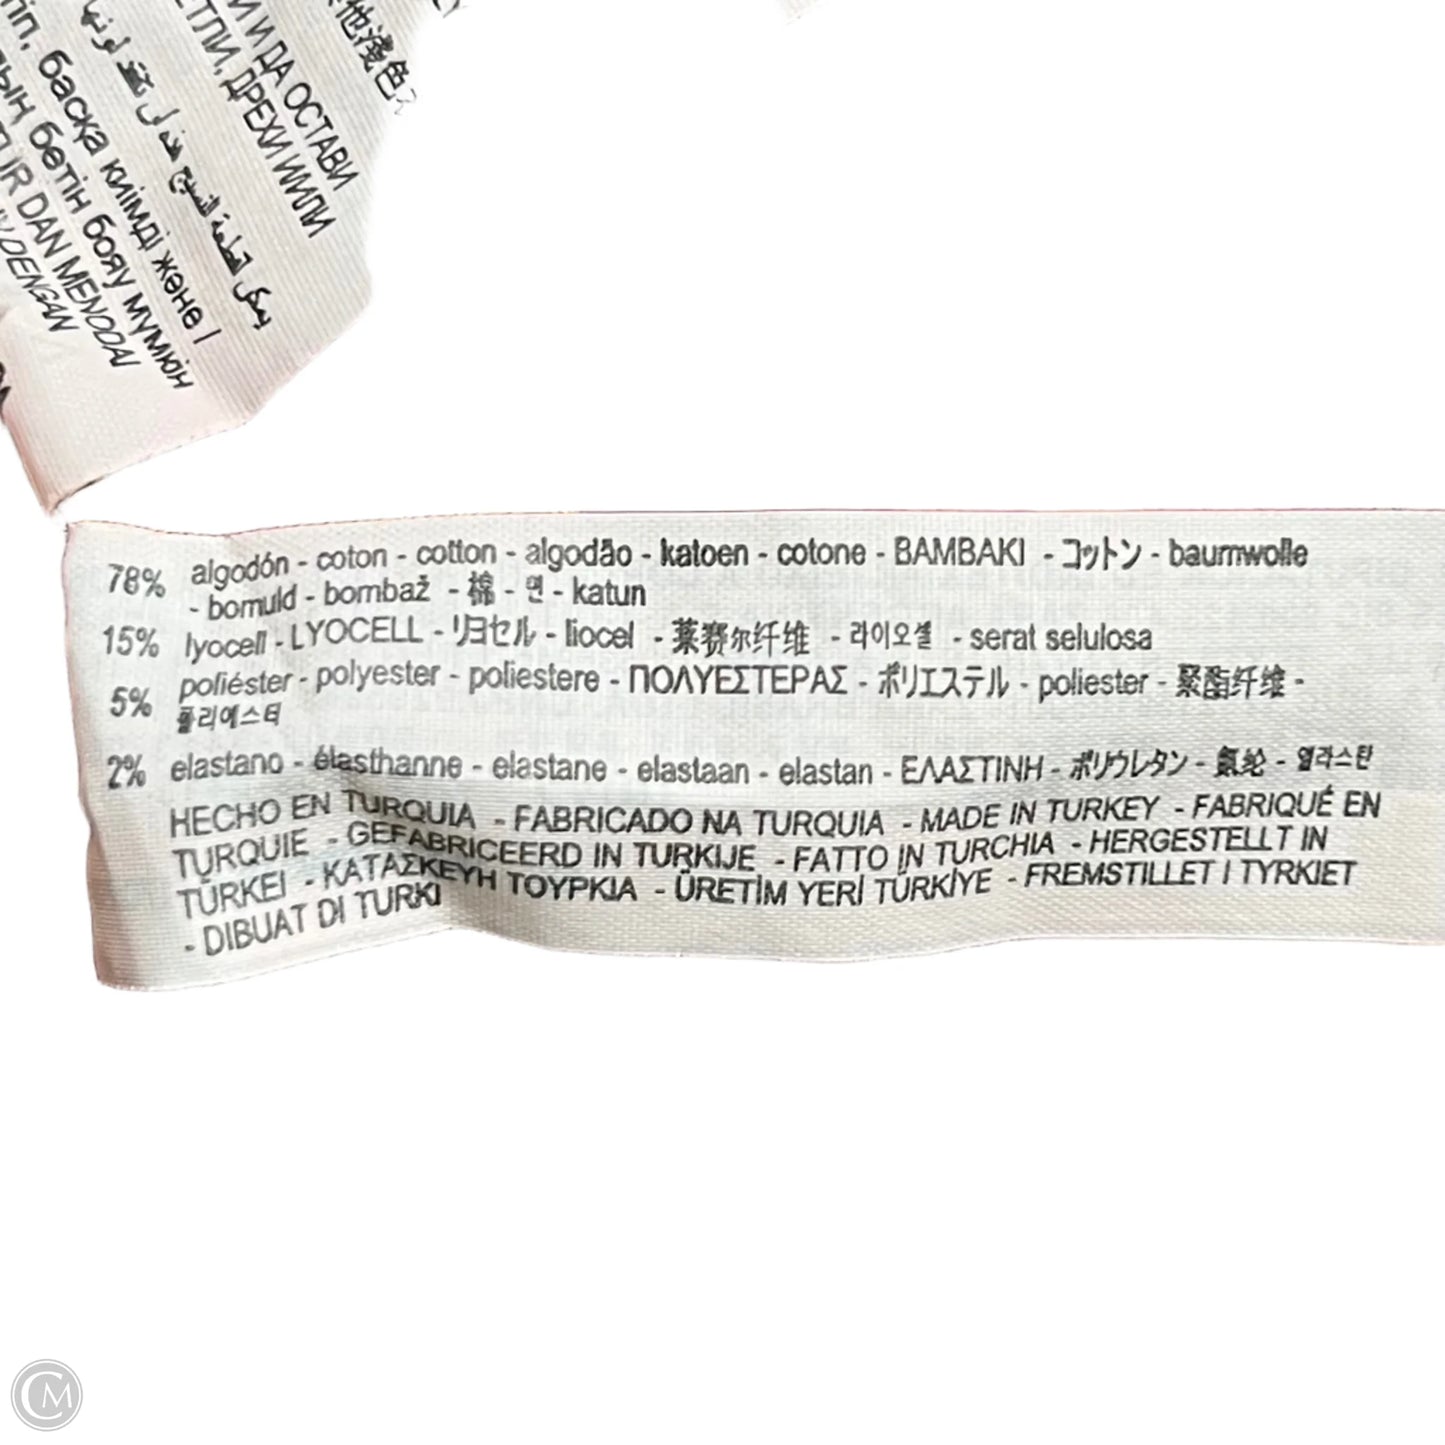 他淺色
И И ДА ОСТАВИ
ЕТЛИ, ДРЕХИ ИЛИ
يمكن لقطعة النسيج هذه أن تفقد لونها
іп, басқа киімді және |
бөтін бояу мүмкін
DAN MENODAI
DENGAN
78% algodón - coton - cotton - algodão - katoen - cotone - BAMBAKI - コットン - baumwolle
- bomuld - bombaž - 棉 - 면 - katun
15% lyocell - LYOCELL - リヨセル - liocel - 莱赛尔纤维 - 라이오셀 - serat selulosa
5% poliéster - polyester - poliestere - ΠΟΛΥΕΣΤΕΡΑΣ - ポリエステル - poliester - 聚酯纤维 -
폴리에스터
2% elastano - élasthanne - elastane - elastaan - elastan - ΕΛΑΣΤΙΝΗ - ポリウレタン - 氨纶 - 엘라스탄
HECHO EN TURQUIA - FABRICADO NA TURQUIA - MADE IN TURKEY - FABRIQUÉ EN
TURQUIE - GEFABRICEERD IN TURKIJE - FATTO IN TURCHIA - HERGESTELLT IN
TÜRKEI - ΚΑΤΑΣΚΕΥΗ ΤΟΥΡΚΙΑ - ÜRETİM YERİ TÜRKİYE - FREMSTILLET I TYRKIET
- DIBUAT DI TURKI
CM